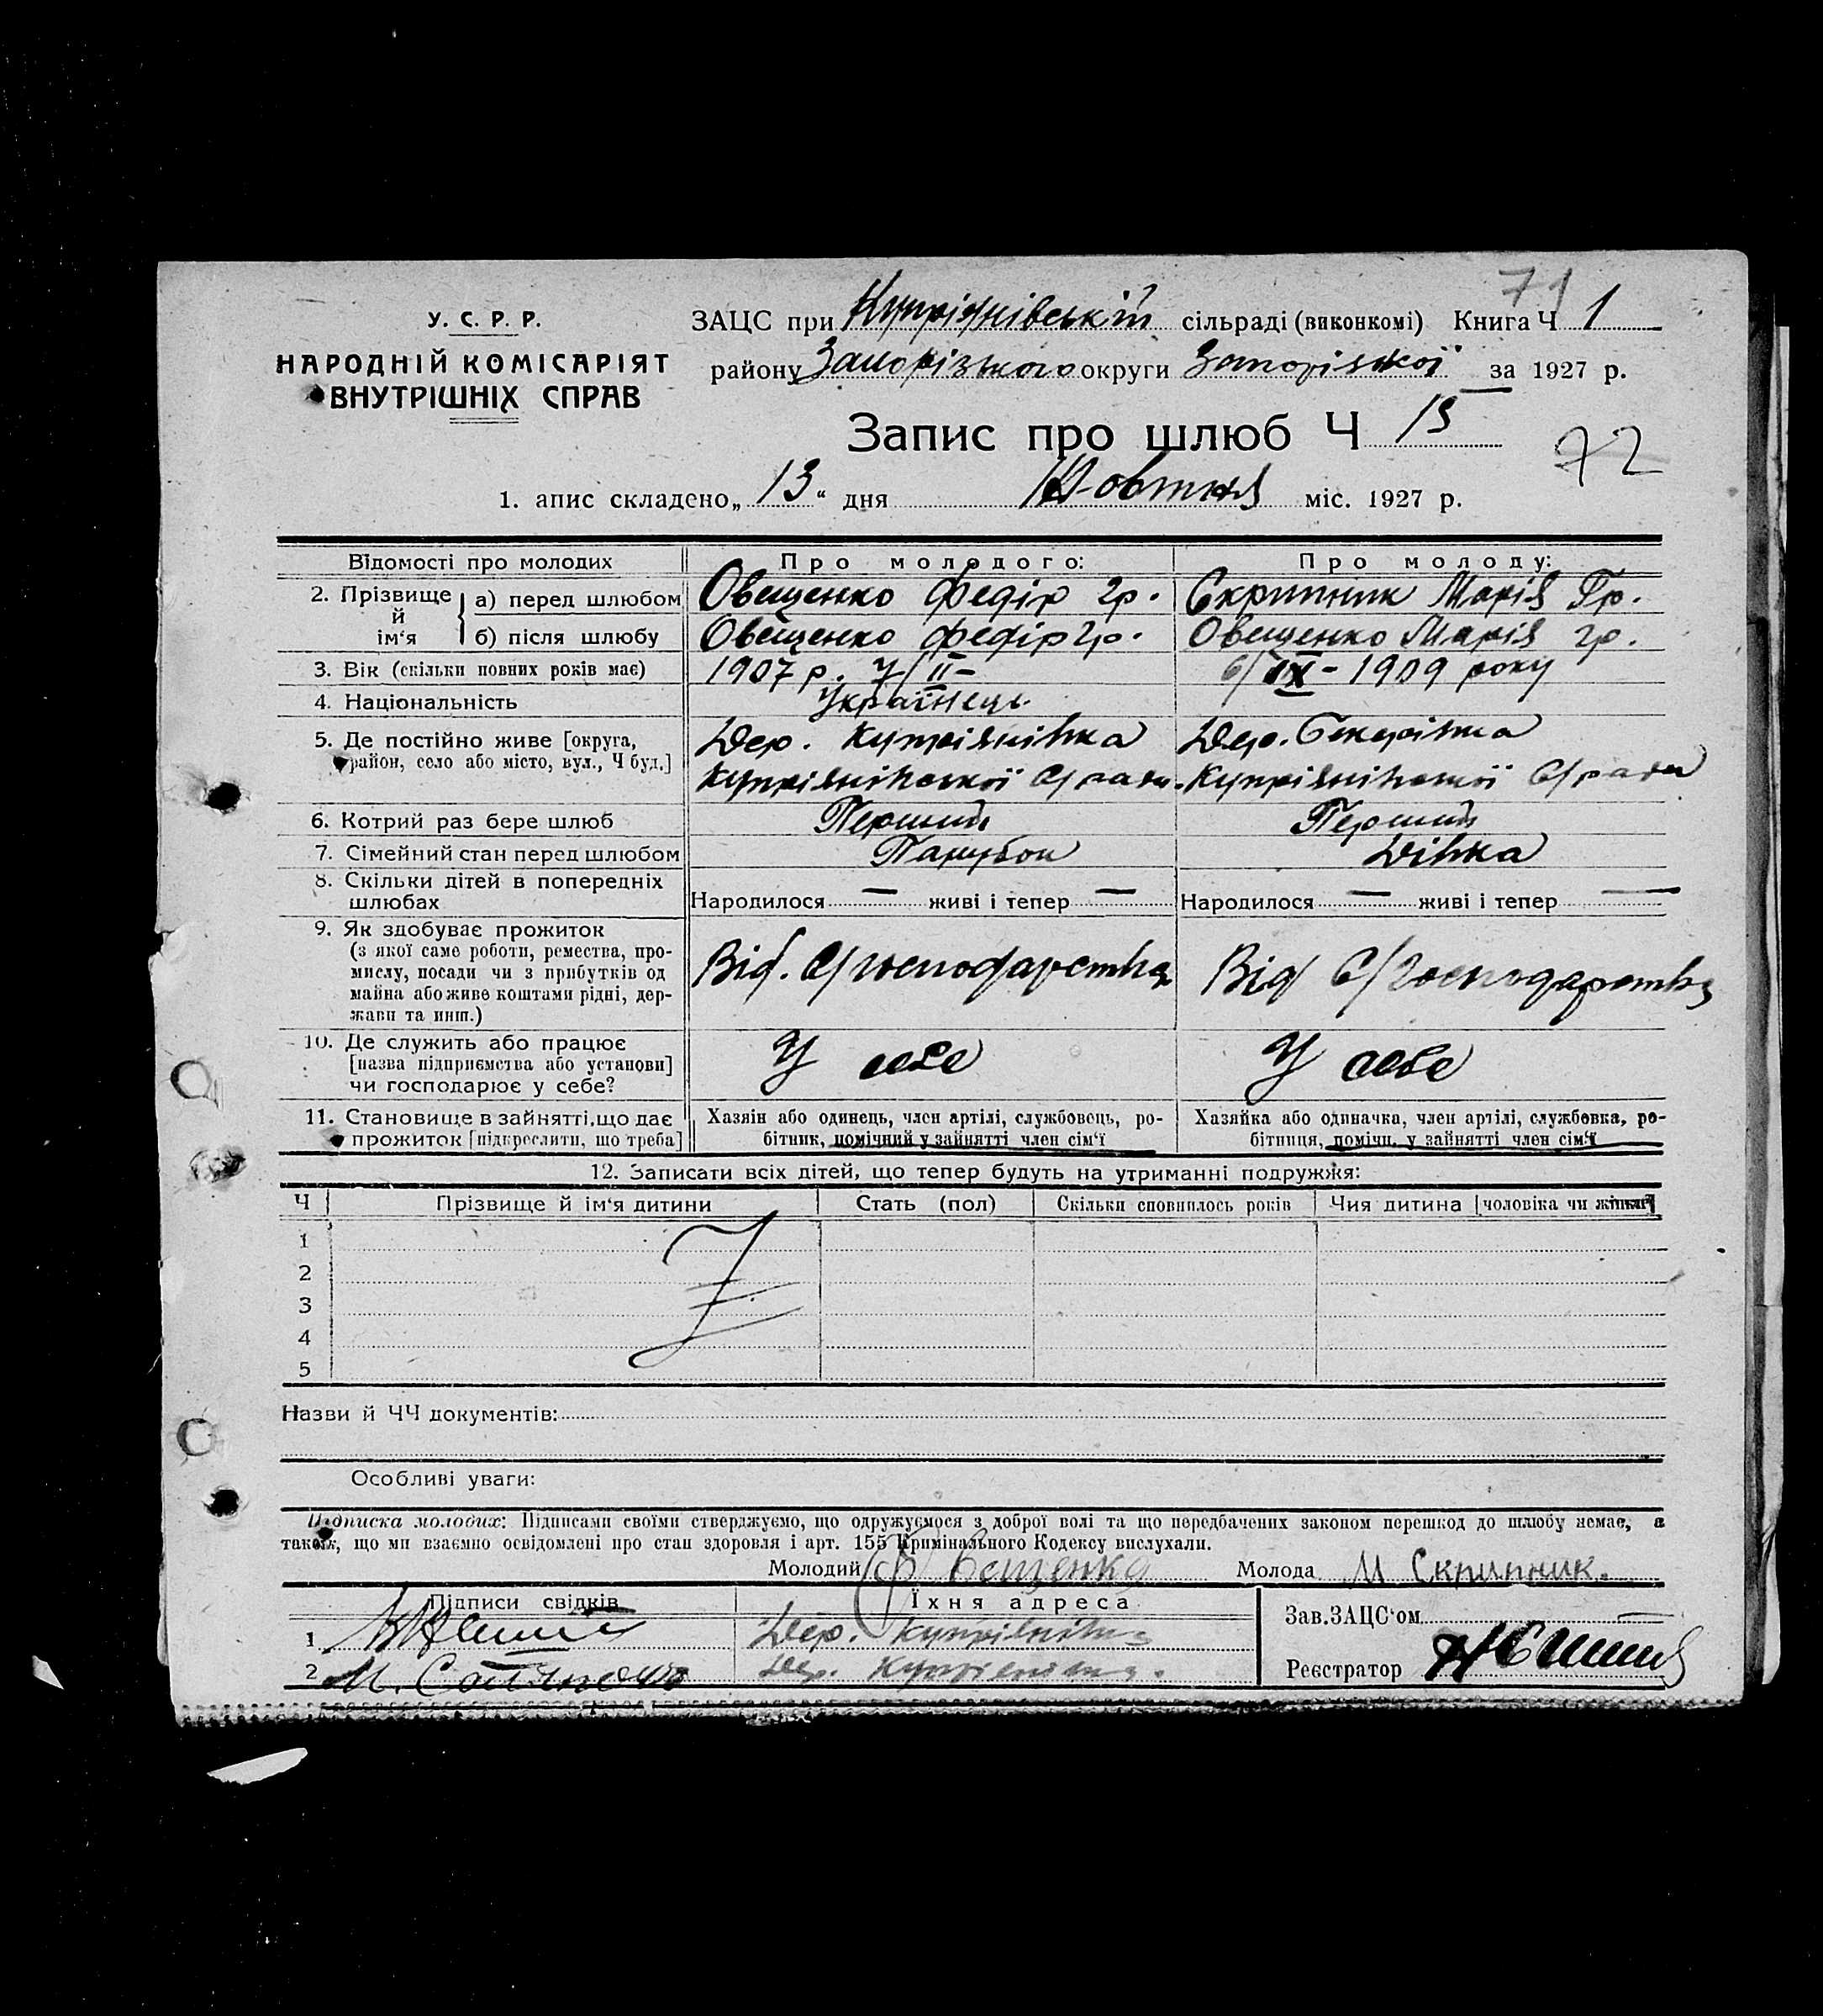 71
У. С. Р. Р.
НАРОДНІЙ КОМІСАРІЯТ
ВНУТРІШНІХ СПРАВ
ЗАЦС при Купріянівській сільраді (виконкомі) Книга Ч 1
району Запорізького округи Запорізької за 1927 р.
Запис про шлюб Ч 15
72
1. апис складено „ 13 “ дня Жовтня міс. 1927 р.
Відомості про молодих Про молодого: Про молоду:
2. Прізвище й ім‘я а) перед шлюбом Овещенко Федір Гр. Скрипник Марія Гр.
б) після шлюбу Овещенко Федір Гр. Овещенко Марія Гр.
3. Вік (скільки повних років має) 1907 р. 7/II- 6/IX - 1909 року
4. Національність Українець
5. Де постійно живе [округа, Дер. Купріянівка Дер.
район, село або місто, вул., Ч буд.] Купріянівської С/ради. Купріянівської С/ради
6. Котрий раз бере шлюб Перший Перший
7. Сімейний стан перед шлюбом Парубок Дівка
8. Скільки дітей в попередніх
шлюбах Народилося — живі і тепер — Народилося — живі і тепер —
9. Як здобуває прожиток
(з якої саме роботи, ремества, про-
мислу, посади чи з прибутків од Від. С/господарства Від С/Господарства
майна або живе коштами рідні, дер-
жави та инш.)
10. Де служить або працює
[назва підприємства або установи] У себе У себе
чи господарює у себе?
11. Становище в зайнятті, що дає Хазяін або одинець, член артілі, службовець, ро- Хазяйка або одиначка, член артілі, службовка, ро-
прожиток [підкреслити, що треба] бітник, помічний у зайнятті член сім‘ї бітниця, помічн. у зайнятті член сім‘ї
12. Записати всіх дітей, що тепер будуть на утриманні подружжя:
Ч Прізвище й ім‘я дитини Стать (пол) Скільки сповнилось років Чия дитина [чоловіка чи жінки]
1
2
3
4
5
Назви й ЧЧ документів:
Особливі уваги:
Підписка молодих: Підписами своїми стверджуємо, що одружуємося з доброї волі та що передбачених законом перешкод до шлюбу немає, а
також, що ми взаємно освідомлені про стан здоровля і арт. 155 Кримінального Кодексу вислухали.
Молодий Ф Овещенко Молода М Скрипник.
Підписи свідків Їхня адреса
Зав. ЗАЦС‘ом
1. Дер. Купріянівка
2 М. Дер. Купріянівка.
Реєстратор